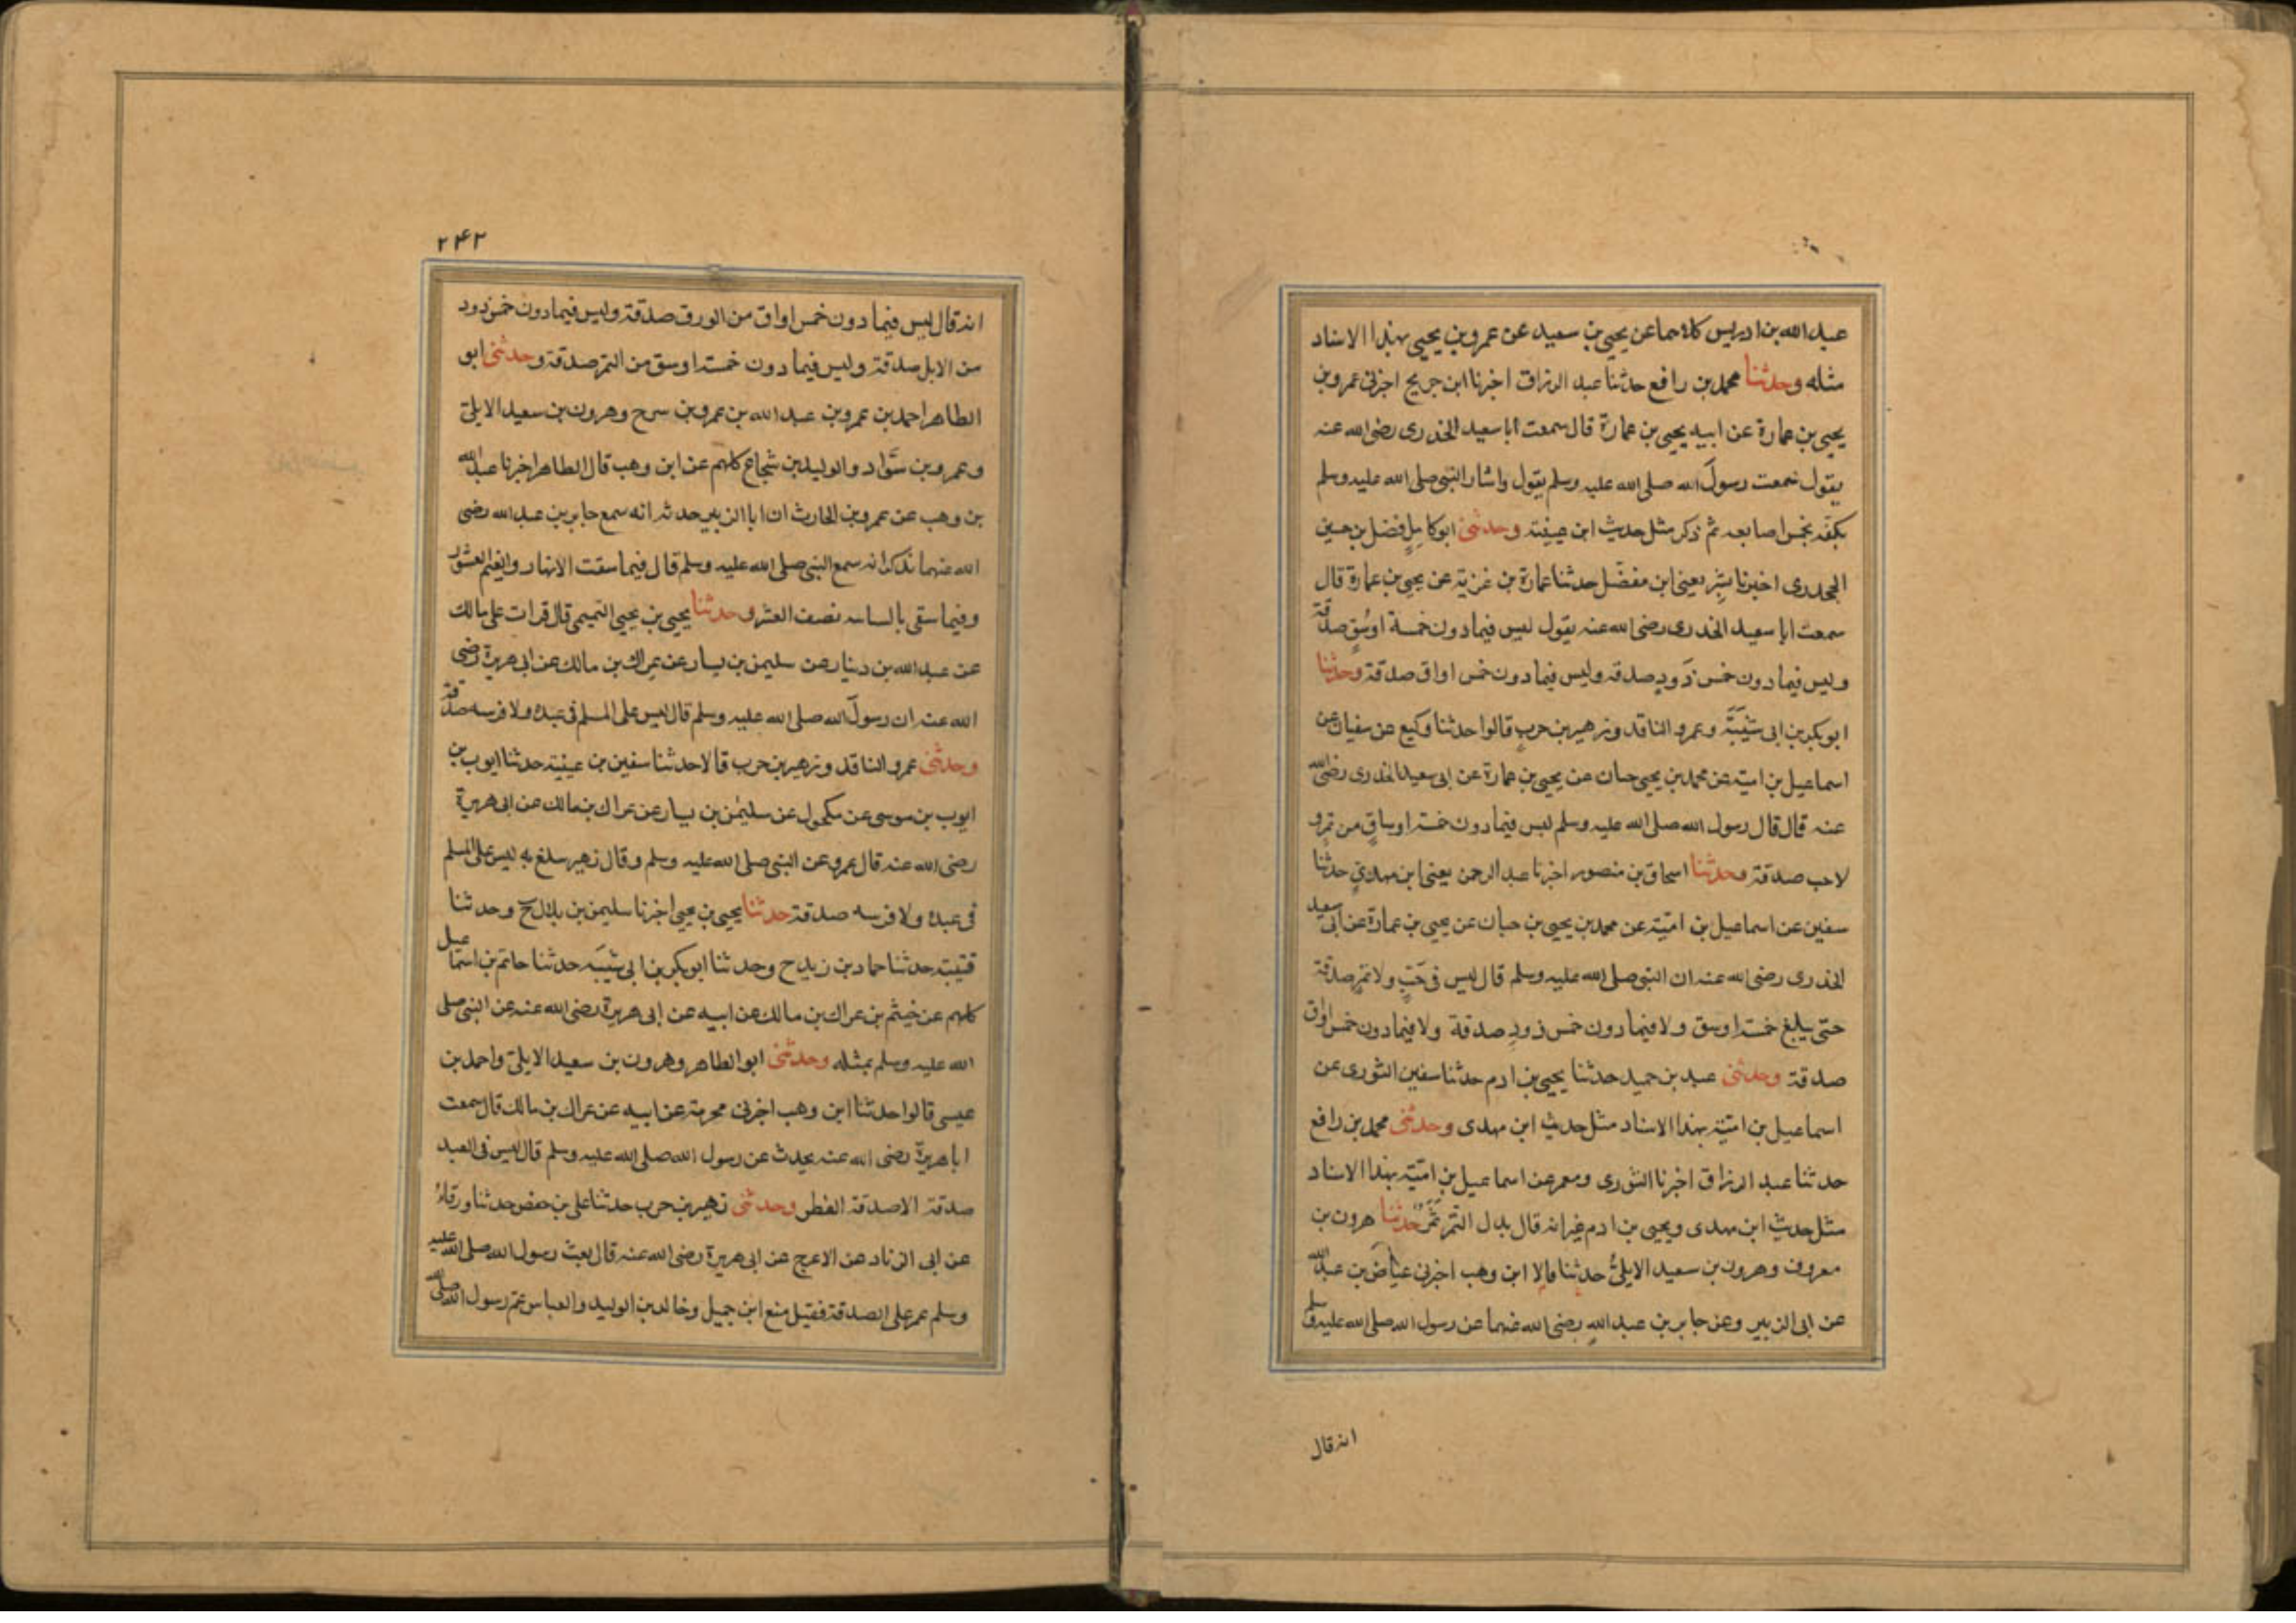 عبد الله بن ادريس كلاهما عن يحيى بن سعيد عن عمرو بن يحيى بهذا الاسناد
مثله وحدثنا محمد بن رافع حدثنا عبد الرزاق اخبرنا ابن جريج اخبرنى عمرو بن
يحيى بن عمارة عن ابيه يحيى بن عمارة قال سمعت ابا سعيد الخدرى رضى الله عنه
يقول سمعت رسول الله صلى الله عليه وسلم يقول واشار النبى صلى الله عليه وسلم
بكفه بخمس اصابعه ثم ذكر مثل حديث ابن عيينة وحدثنى ابو كامل فضل بن حسين
الجحدرى اخبرنا بشر يعنى ابن مفضل حدثنا عمارة بن غزية عن يحيى بن عمارة قال
سمعت ابا سعيد الخدرى رضى الله عنه يقول ليس فيما دون خمسة اوسق صدقة
وليس فيما دون خمس ذود صدقة وليس فيما دون خمس اواق صدقة وحدثنا
ابو بكر بن ابى شيبة وعمرو الناقد وزهير بن حرب قالوا حدثنا وكيع عن سفيان عن
اسماعيل بن امية عن محمد بن يحيى حبان عن يحيى بن عمارة عن ابى سعيد الخدرى رضى الله
عنه قال قال رسول الله صلى الله عليه وسلم ليس فيما دون خمسة اوساق من تمر و
لا حب صدقة وحدثنا اسحاق بن منصور اخبرنا عبد الرحمن يعنى ابن مهدى حدثنا
سفين عن اسماعيل بن امية عن محمد بن يحيى بن حبان عن يحيى بن عمارة عن ابى سعيد
الخدرى رضى الله عنه ان النبى صلى الله عليه وسلم قال ليس فى حب ولا تمر صدقة
حتى يبلغ خمسة اوسق ولا فيما دون خمس ذود صدقة ولا فيما دون خمس اواق
صدقة وحدثنى عبد بن حميد حدثنا يحيى بن ادم حدثنا سفين الثورى عن
اسماعيل بن امية بهذا الاسناد مثل حديث ابن مهدى وحدثنى محمد بن رافع
حدثنا عبد الرزاق اخبرنا الثورى ومعمر عن اسماعيل بن امية بهذا الاسناد
مثل حديث ابن مهدى ويحيى بن ادم غير انه قال بدل التمر ثمر حدثنا هرون بن
معروف وهرون بن سعيد الايلى حدثنا قالا ابن وهب اخبرنى عياض بن عبد الله
عن ابى الزبير وعن جابر بن عبد الله رضى الله عنهما عن رسول الله صلى الله عليه وسلم
انه قال
٢٤٢
انه قال ليس فيما دون خمس اواق من الورق صدقة وليس فيما دون خمس ذود
من الابل صدقة وليس فيما دون خمسة اوسق من التمر صدقة وحدثنى ابو
الطاهر احمد بن عمرو بن عبد الله بن عمرو بن سرح وهرون بن سعيد الايلى
وعمرو بن سواد والوليد بن شجاع كلهم عن ابن وهب قال الطاهر اخبرنا عبد الله
بن وهب عن عمرو بن الحارث ان ابا الزبير حدثه انه سمع جابر بن عبد الله رضى
الله عنهما يذكر انه سمع النبى صلى الله عليه وسلم قال فيما سقت الانهار والغيم العشور
وفيما سقى بالسانيه نصف العشر وحدثنا يحيى بن يحيى التميمى قال قرات على مالك
عن عبد الله بن دينار عن سليمن بن يسار عن عراك بن مالك عن ابى هريرة رضى
الله عنه ان رسول الله صلى الله عليه وسلم قال ليس على المسلم فى عبده ولا فرسه صدقة
وحدثنى عمرو الناقد وزهير بن حرب قالا حدثنا سفين بن عيينة حدثنا ايوب بن
ايوب بن موسى عن مكحول عن سليمن بن يسار عن عراك بن مالك عن ابى هريرة
رضى الله عنه قال عمرو عن النبى صلى الله عليه وسلم وقال زهير يبلغ به ليس على المسلم
فى عبده ولا فرسه صدقة حدثنا يحيى بن يحيى اخبرنا سليمن بن بلال ح وحدثنا
قتيبة حدثنا حماد بن زيد ح وحدثنا ابو بكر بن ابى شيبة حدثنا حاتم بن اسماعيل
كلهم عن خيثم بن عراك بن مالك عن ابيه عن ابى هريرة رضى الله عنه عن النبى صلى
الله عليه وسلم بمثله وحدثنى ابو الطاهر وهرون بن سعيد الايلى واحمد بن
عيسى قالوا حدثنا ابن وهب اخبرنى مخرمة عن ابيه عن عراك بن مالك قال سمعت
ابا هريرة رضى الله عنه يحدث عن رسول الله صلى الله عليه وسلم قال ليس فى العبد
صدقة الا صدقة الفطر وحدثنى زهير بن حرب حدثنا على بن حفص حدثنا ورقاء
عن ابى الزناد عن الاعرج عن ابى هريرة رضى الله عنه قال بعث رسول الله صلى الله عليه
وسلم عمر على الصدقة فقيل منع ابن جميل وخالد بن الوليد والعباس عم رسول الله صلى